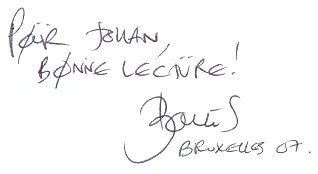 Pour Johan,
Bonne lecture!
Bruxelles 07.